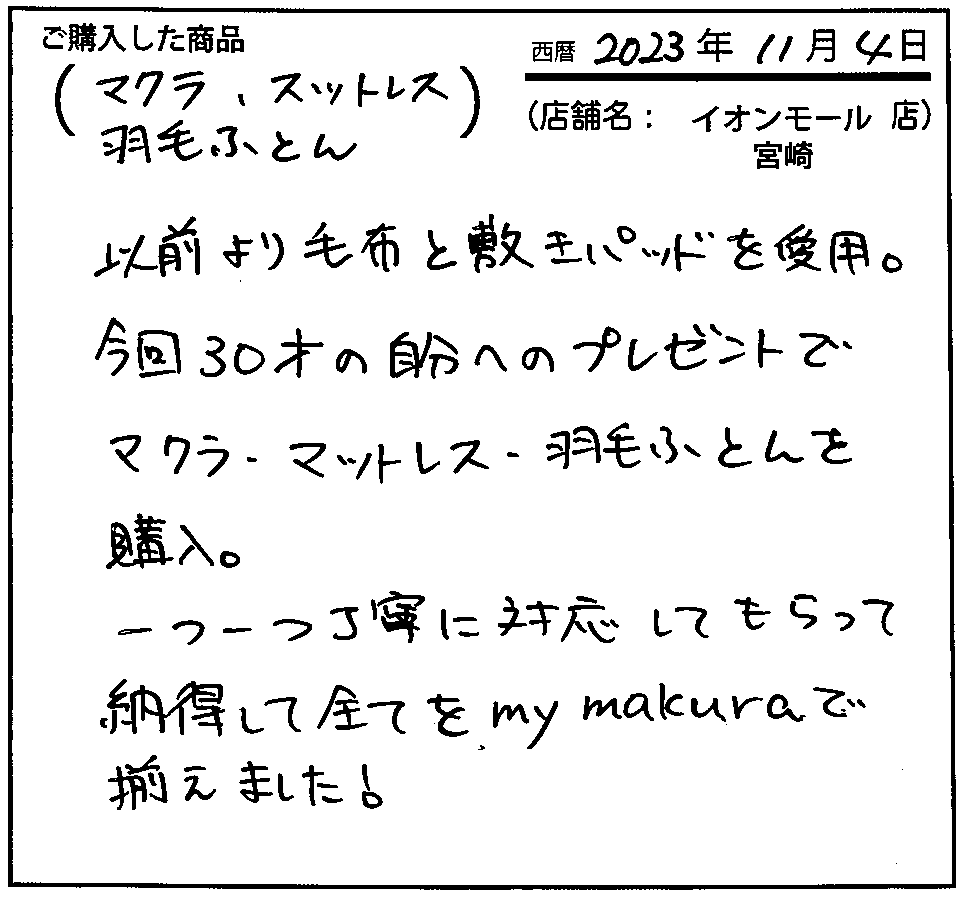 ご購入した商品
(マクラ、スットレス
羽毛ふとん)
西暦 2023年 11月 4日
(店舗名： イオンモール 店)
宮崎
以前より毛布と敷きパッドを愛用。
今回30才の自分へのプレゼントで
マクラ・マットレス・羽毛ふとんを
購入。
一つ一つ丁寧に対応してもらって
納得して全てをmy makuraで
揃えました!